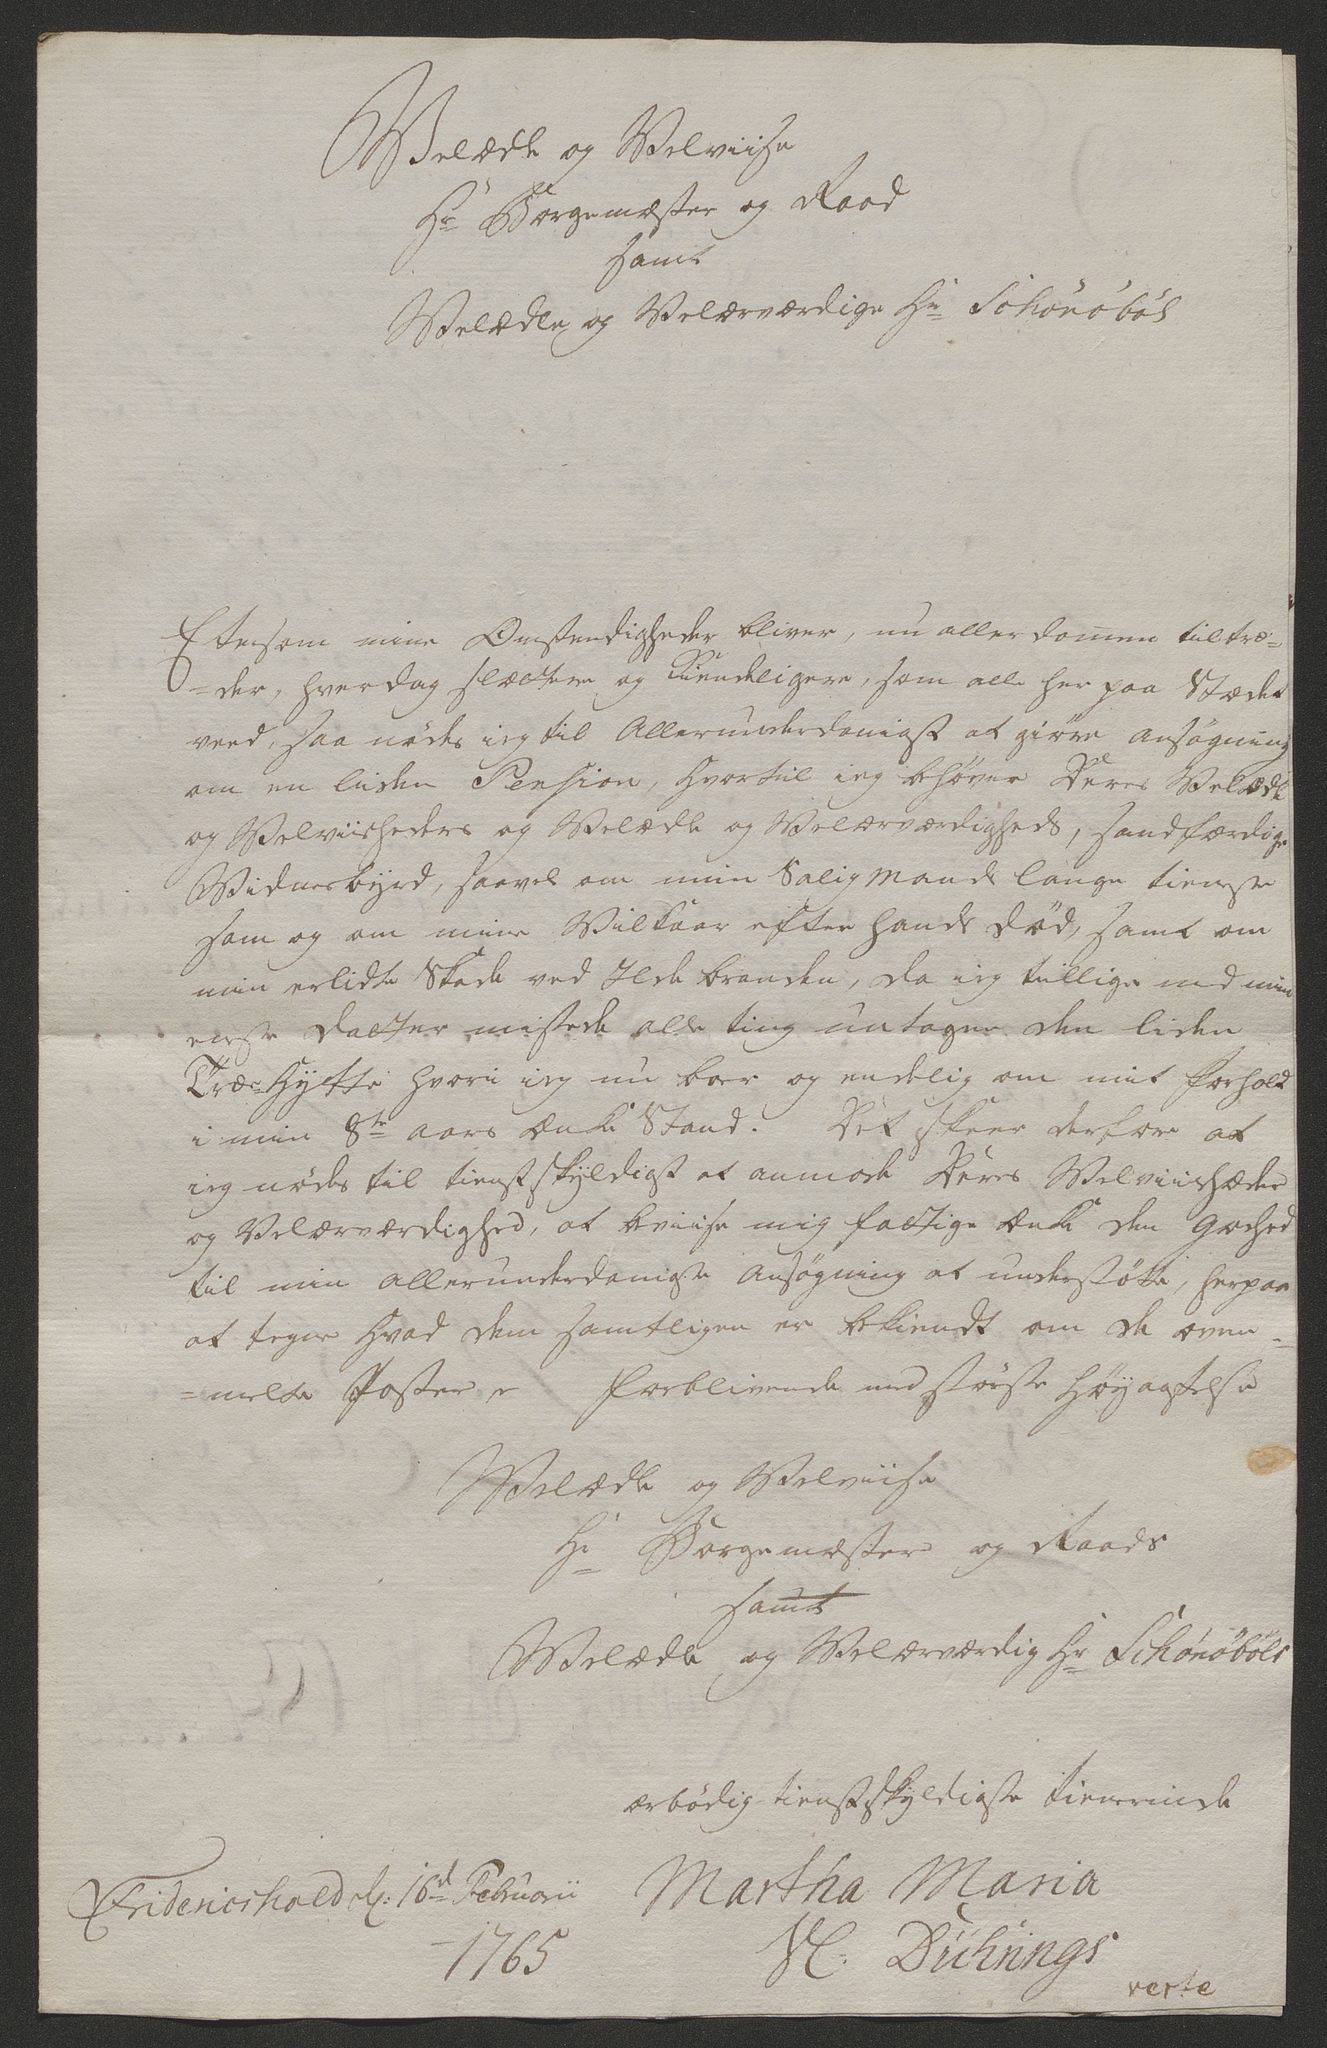 Welædle og Welviise
Hr Borgemæster og Raad
samt
Welædle og Velærværdige Hr Schønebøl
Efftersom mine Omstendigheder bliver, nu allerdommen tiltræ=
=der, hver dag slættere og kiendeligere, som alle her paa Stædet
veed, saa nødes ieg til Allerunderdanigst at giøre Ansøgning
om en liden Pension, hvortil ieg behøver Deres Velædle
og Velviisheders og Velædle og Velærværdigheds, sandfærdige
Widnesbyrd, saavel om min Salig Mands lange tieneste
som og om mine Wilkaar efter hands død, samt om
min erlidte Skade ved Ilde branden, da ieg tillige med min
eeneste datter mistede alle ting untagen den liden
Træe Hytte hvori ieg nu boer og endelig om mit forhold
i min 8te aars Enke Stand. Det skeer derfore at
ieg nødes til tienstskyldigst at anmode Deres Welviishæder
og Velærværdighed, at beviise mig fattige Enke den Godhed
til min allerunderdanigste Ansøgning at understøtte, herpaa
at tegne hvad dem samtligen er bekiendt om de oven=
=melte Poster Forblivende med største Høyagtelse
Welædle og Welviise
Hr Borgemæster og Raads
samt
Welædle og Welærværdig Hr Schønebøls
ærbødig tienstskyldigste tienerinde
Fridericshald d: 16d Februarii Martha Maria
1765 Sl. Dührings
verte